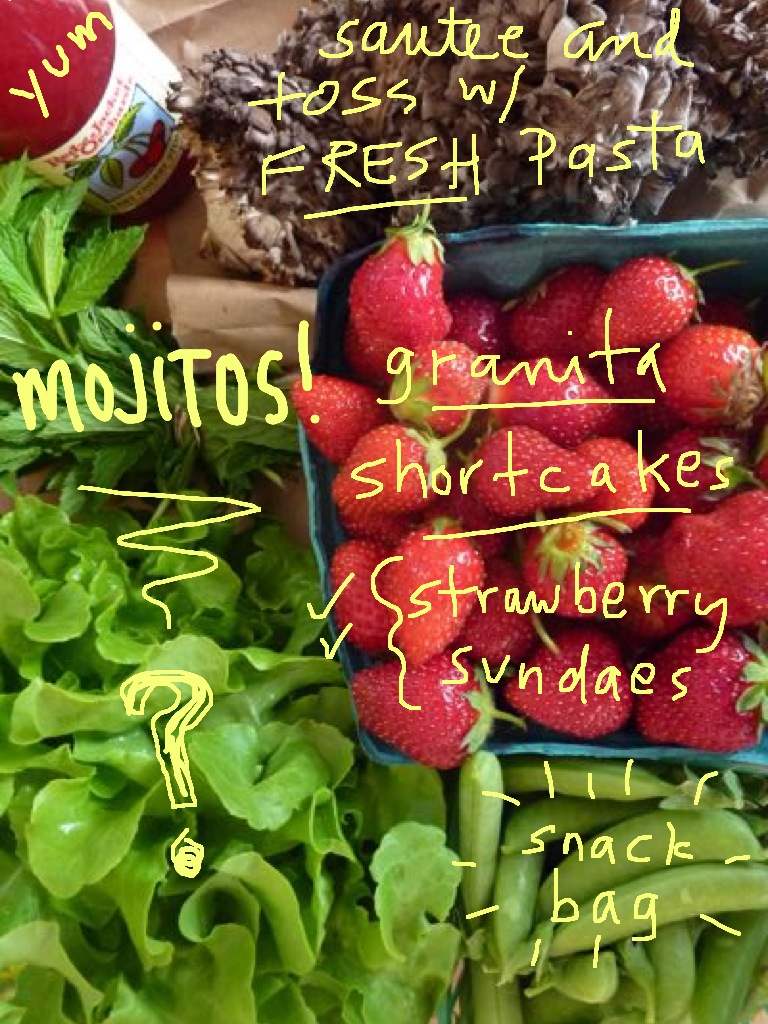 yum
sautee and
toss w/
FRESH Pasta
mojitos!
granita
shortcakes
strawberry
sundaes
?
snack
bag